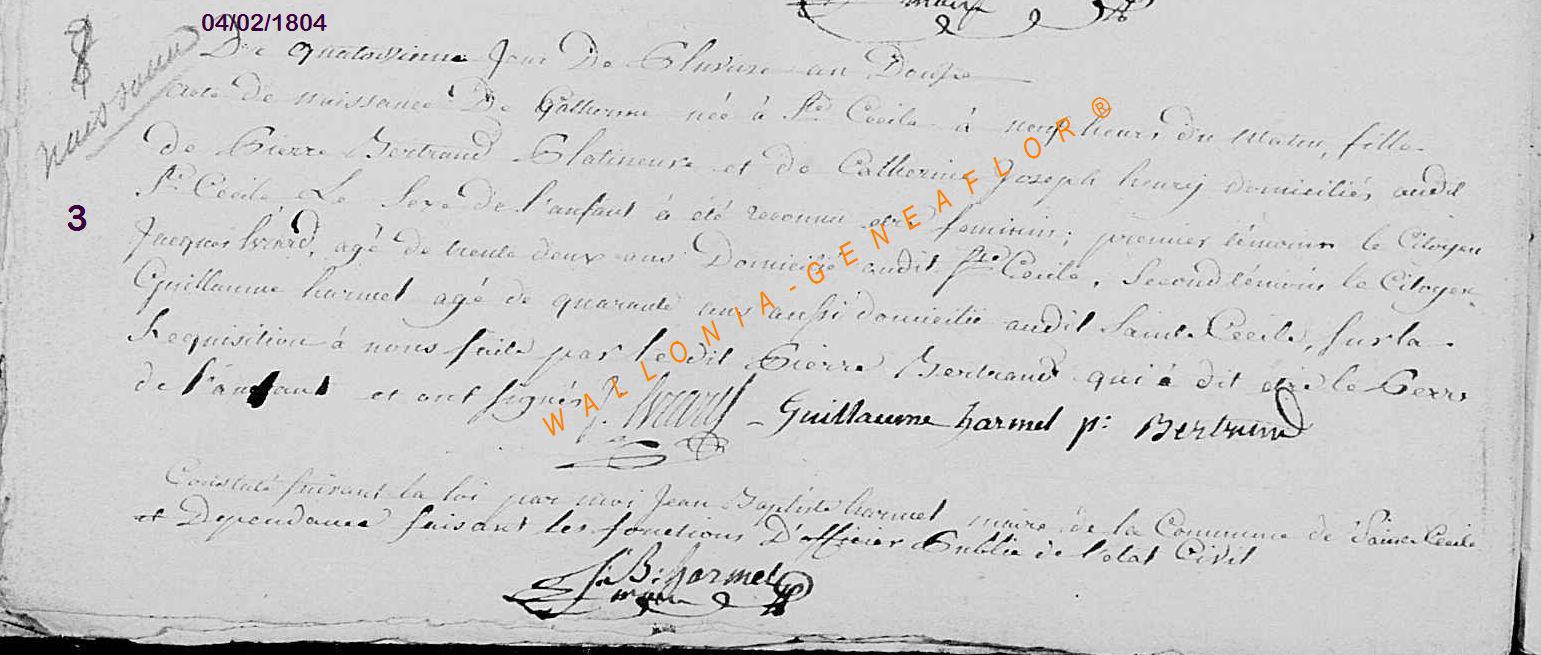 maire
04/02/1804
8
naissance
Du quatorzieme Jour De Pluviose an Douze
acte De naissance De Catherine née à Ste Cecile à neuf heures du Matin, fille
de Pierre Bertrand Platineure et de Catherine Joseph henry domiciliés audit
Ste Cecile Le Sexe de l'anfant à été reconnu etre feminin; premier témoins le Citoyen
3
Jacques agé de trente deux ans Domicilié audit Ste Cecile, Second témoin le Citoyen
Guillaume harmel agé de quarante ans aussi domicilié audit Sainte Cecile, sur la
Requisition à nous faite par le dit Pierre Bertrand qui à dit etre le Perre
de l'anfant et ont signés J. Guillaume harmel p: Bertrand
Constaté suivant la loi par moi Jean Baptiste harmel maire de la Commune de Sainte Cecile
et Dependance faisant les fonctions D'officier Public de l'etat Civil
J. B: harmel
maire
WALLONIA-GENEAFLOR®